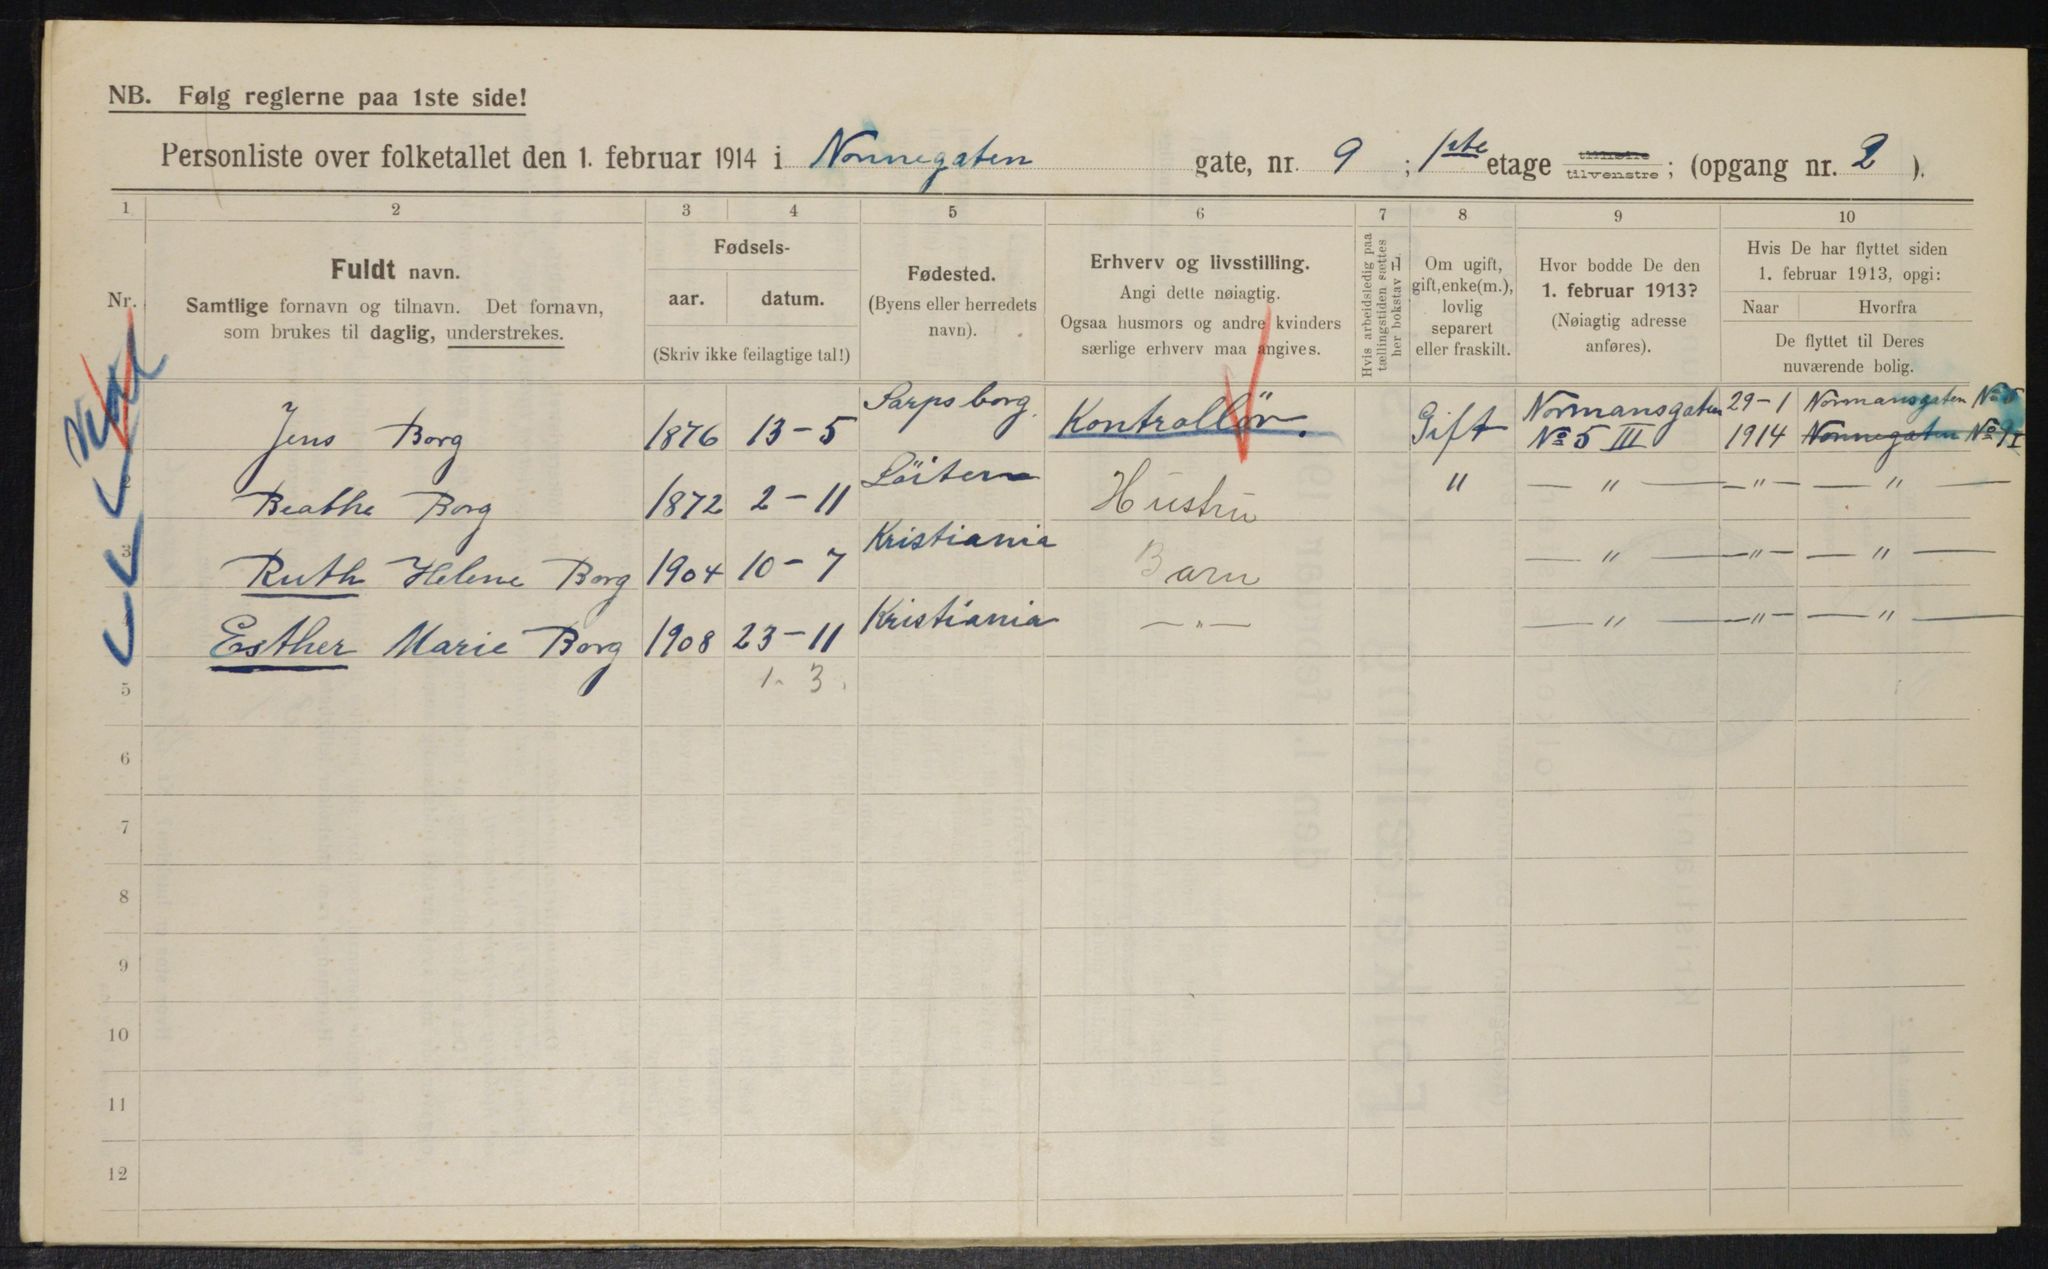 NB. Følg reglerne paa 1ste side!
Personliste over folketallet den 1. februar 1914 i Nonnegaten gate, nr. 9 ; 1ste etage tilhøire tilvenstre ; (opgang nr. 2 ).
1 2 3 4 5 6 7 8 9 10
Nr.
Fuldt navn.
Samtlige fornavn og tilnavn. Det fornavn,
som brukes til daglig, understrekes.
Fødsels-
aar. datum.
(Skriv ikke feilagtige tal!)
Fødested.
(Byens eller herredets
navn).
Erhverv og livsstilling.
Angi dette nøiagtig.
Ogsaa husmors og andre kvinders
særlige erhverv maa angives.
Hvis arbeidsledig paa
tællingstiden sættes
her bokstav L
Om ugift,
gift, enke(m.),
lovlig
separert
eller fraskilt.
Hvor bodde De den
1. februar 1913?
(Nøiagtig adresse
anføres).
Hvis De har flyttet siden
1. februar 1913, opgi:
Naar Hvorfra
De flyttet til Deres
nuværende bolig.
Jens Borg 1876 13-5 Sarpsborg. Kontrollör. Gift Normansgaten No 5 III 29-1 1914 Normansgaten No 5 Nonnegaten No 9 I
Beathe Borg 1872 2-11 Löiten Hustru " — " — — " — — " —
3 Ruth Helene Borg 1904 10-7 Kristiania Barn — " — — " — — " —
Esther Marie Borg 1908 23-11 Kristiania — " — — " — — " — — " —
5 1. 3.
6
7
8
9
10
11
12